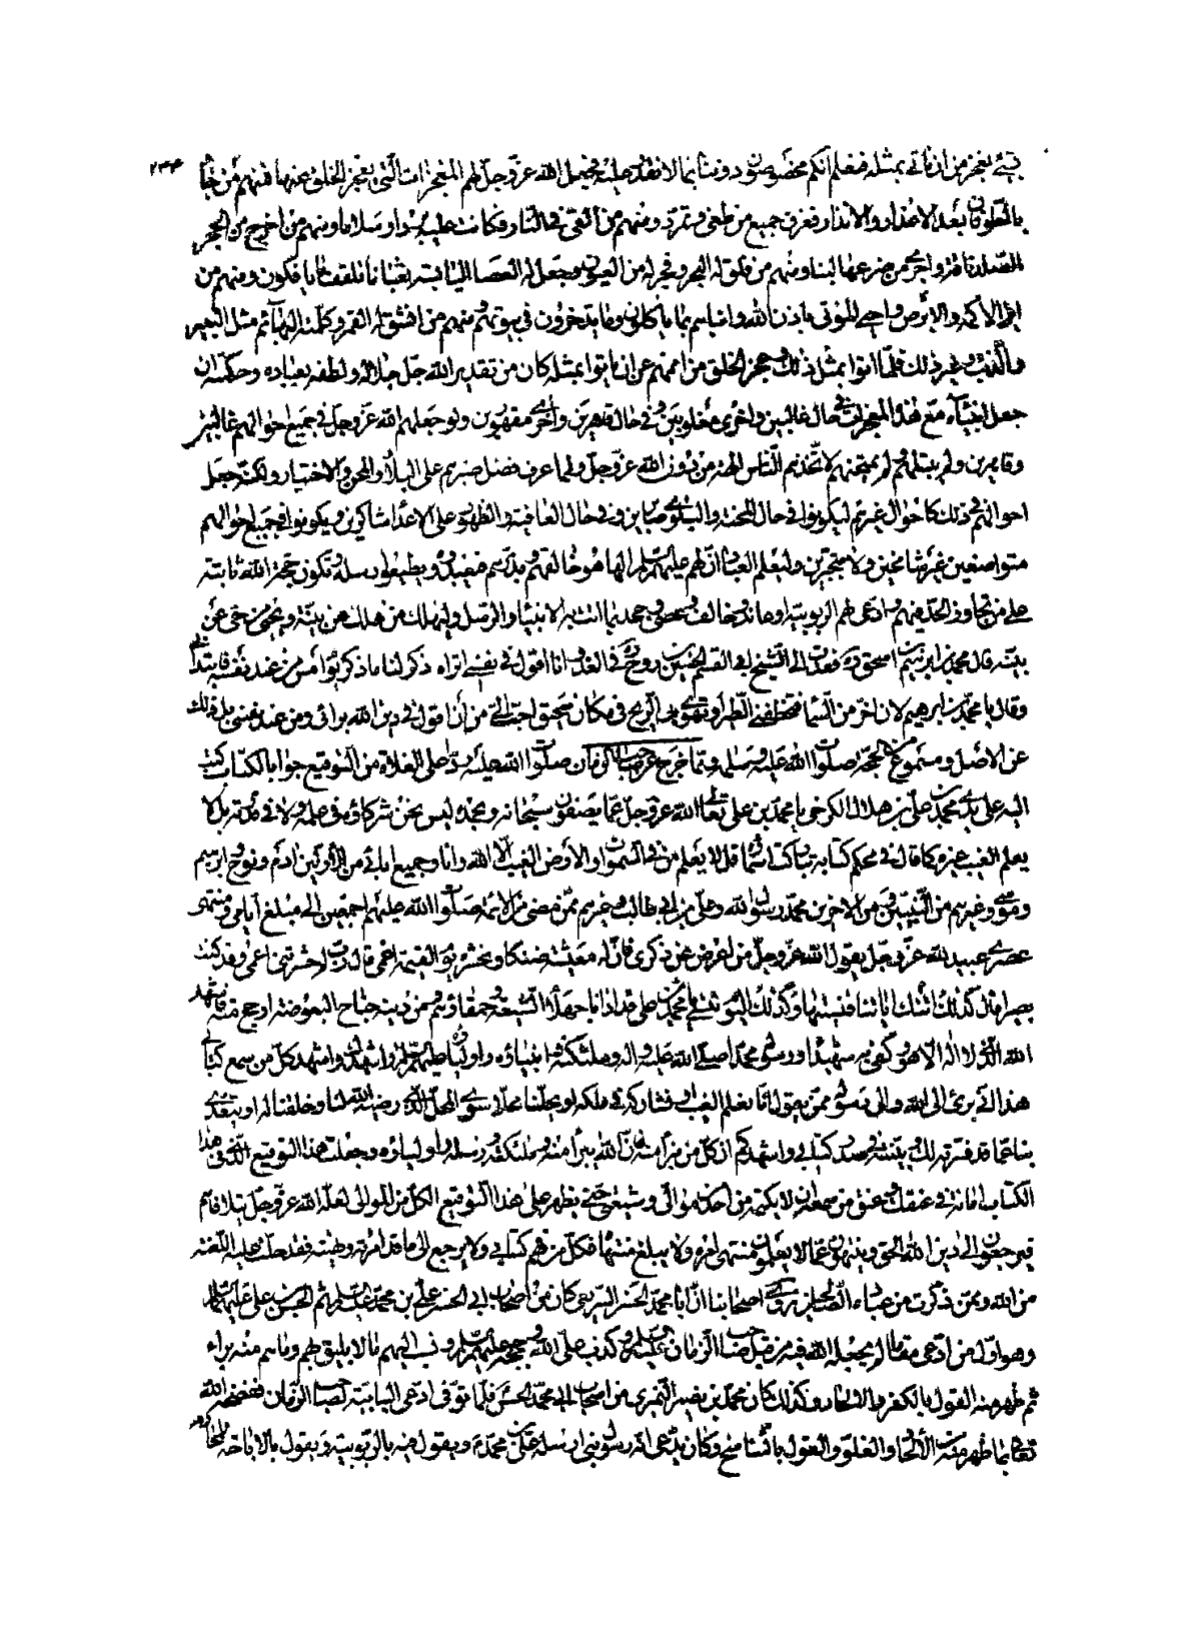 بشئ يعجز من ان ناتى بمثله فنعلم انكم مخصوصون دوننا بما لا نقدر عليه فجعل الله عز وجل لهم المعجزات التى يعجز الخلق عنها فمنهم من جاء ٢٣٤
بالطوفان بعد الاعذار والانذار فغرق جميع من طغى وتمرد ومنهم من القى فى النار فكانت عليه بردا وسلاما ومنهم من اخرج من الحجر
الصلد ناقة واجرى من ضرعها لبنا ومنهم من فلق له البحر وفجر له من العيون وجعل له العصا اليابسة ثعبانا تلقف ما يافكون ومنهم من
ابرأ الاكمه والابرص واحيى الموتى باذن الله وانباهم بما ياكلون وما يدخرون فى بيوتهم ومنهم من انشق له القمر وكلمته البهائم مثل البعير
والذئب وغير ذلك فلما اتوا بمثل ذلك وعجز الخلق من اممهم عن ان ياتوا بمثله كان من تقدير الله جل جلاله ولطفه بعباده وحكمته ان
جعل انبياءه مع هذه المعجزات فى حال غالبين واخرى مغلوبين وفى حال قاهرين واخرى مقهورين ولو جعلهم الله عز وجل فى جميع احوالهم غالبين
وقاهرين ولم يبتلهم ولم يمتحنهم لاتخذهم الناس الهة من دون الله عز وجل ولما عرف فضل صبرهم على البلاء والمحن والاختبار ولكنه جعل
احوالهم فى ذلك كاحوال غيرهم ليكونوا فى حال المحنة والبلوى صابرين وفى حال العافية والظهور على الاعداء شاكرين ويكونوا فى جميع احوالهم
متواضعين غير شامخين ولا متجبرين وليعلم العباد ان لهم عليهم السلم الها هو خالقهم ومدبرهم فيعبدوه ويطيعوا رسله وتكون حجة الله ثابتة
على من تجاوز الحد فيهم وادعى لهم الربوبية او عاند وخالف وعصى وجحد بما اتت به الانبياء والرسل وليهلك من هلك عن بينة ويحيى من حى عن
بينة قال محمد بن ابرهيم اسحق رض فعدت الى الشيخ ابى القسم الحسين بن روح رض فى الغد وانا اقول فى نفسى اتراه ذكر لنا ما ذكر يوم امس من عند نفسه فابتدأنى
وقال يا محمد بن ابراهيم لان اخر من السماء فتخطفنى الطير او تهوى بى الريح فى مكان سحيق احب الى من ان اقول فى دين الله برأى ومن عند نفسى بل ذلك
عن الاصل ومسموع من الحجة صلوات الله عليه وسلامه ومما خرج عن صاحب الزمان صلوات الله عليه ردا على الغلاة من التوقيع جوابا لكتاب كتب
اليه على يدى محمد بن على بن هلال الكرخى يا محمد بن على تعالى الله عز وجل عما يصفون سبحانه وبحمده ليس نحن شركاؤه فى علمه ولا فى قدرته بل لا
يعلم الغيب غيره كما قال فى محكم كتابه تبارك اسمائه قل لا يعلم من فى السموات والارض الغيب الا الله وانا وجميع ابائى من الاولين ادم ونوح وابرهيم
وموسى وغيرهم من النبيين ومن الاخرين محمد رسول الله وعلى بن ابى طالب وغيرهم ممن مضى من الائمة صلوات الله عليهم اجمعين الى مبلغ ايامى ومنتهى
عصرى عبيد الله عز وجل يقول الله عز وجل من اعرض عن ذكرى فان له معيشة ضنكا ونحشره يوم القيمة اعمى قال رب لم حشرتنى اعمى وقد كنت
بصيرا قال كذلك اتتك اياتنا فنسيتها وكذلك اليوم تنسى يا محمد بن على قد اذانا جهلاء الشيعة وحمقاؤهم ومن دينه جناح البعوضة ارجح منه فاشهد
الله الذى لا اله الا هو وكفى به شهيدا ورسوله محمدا صلى الله عليه واله وملئكته وانبياؤه واولياؤه عليهم السلم واشهدك واشهد كل من سمع كتابى
هذا انى برئ الى الله والى رسوله ممن يقول انا نعلم الغيب او نشاركه فى ملكه او يحلنا محلا سوى المحل الذى رضيه الله لنا وخلقنا له او يتعدى
بنا عما قد فسرته لك وبينته فى صدر كتابى واشهدكم ان كل من نبرأ منه فان الله يبرأ منه وملئكته ورسله واولياؤه وجعلت هذا التوقيع الذى فى هذا
الكتاب امانة فى عنقك وعنق من سمعه ان لا يكتمه من احد من موالى وشيعتى حتى يظهر على هذا التوقيع الكل من الموالى لعل الله عز وجل يتلافاهم
فيرجعون الى دين الله الحق وينتهون عما لا يعلمون منتهى امره ولا يبلغ منتهاه فكل من فهم كتابى ولا يرجع الى ما قد امرته ونهيته فقد حلت عليه اللعنة
من الله وممن ذكرت من عباده الصالحين روى اصحابنا ان ابا محمد الحسن الشريعى كان من اصحاب ابى الحسن على بن محمد عليه السلم ثم الحسن بن على عليهما السلم
وهو اول من ادعى مقاما لم يجعله الله فيه من قبل صاحب الزمان عليه السلم وكذب على الله وحججه عليهم السلم ونسب اليهم ما لا يليق بهم وما هم منه براء
ثم ظهر منه القول بالكفر والالحاد وكذلك كان محمد بن نصير النميرى من اصحاب ابى محمد الحسن فلما توفى ادعى البابية لصاحب الزمان ففضحه الله
تعالى بما ظهر منه من الالحاد والغلو والقول بالتناسخ وكان يدعى انه رسول نبى ارسله على بن محمد ع ويقول فيه بالربوبية ويقول بالاباحة للمحارم